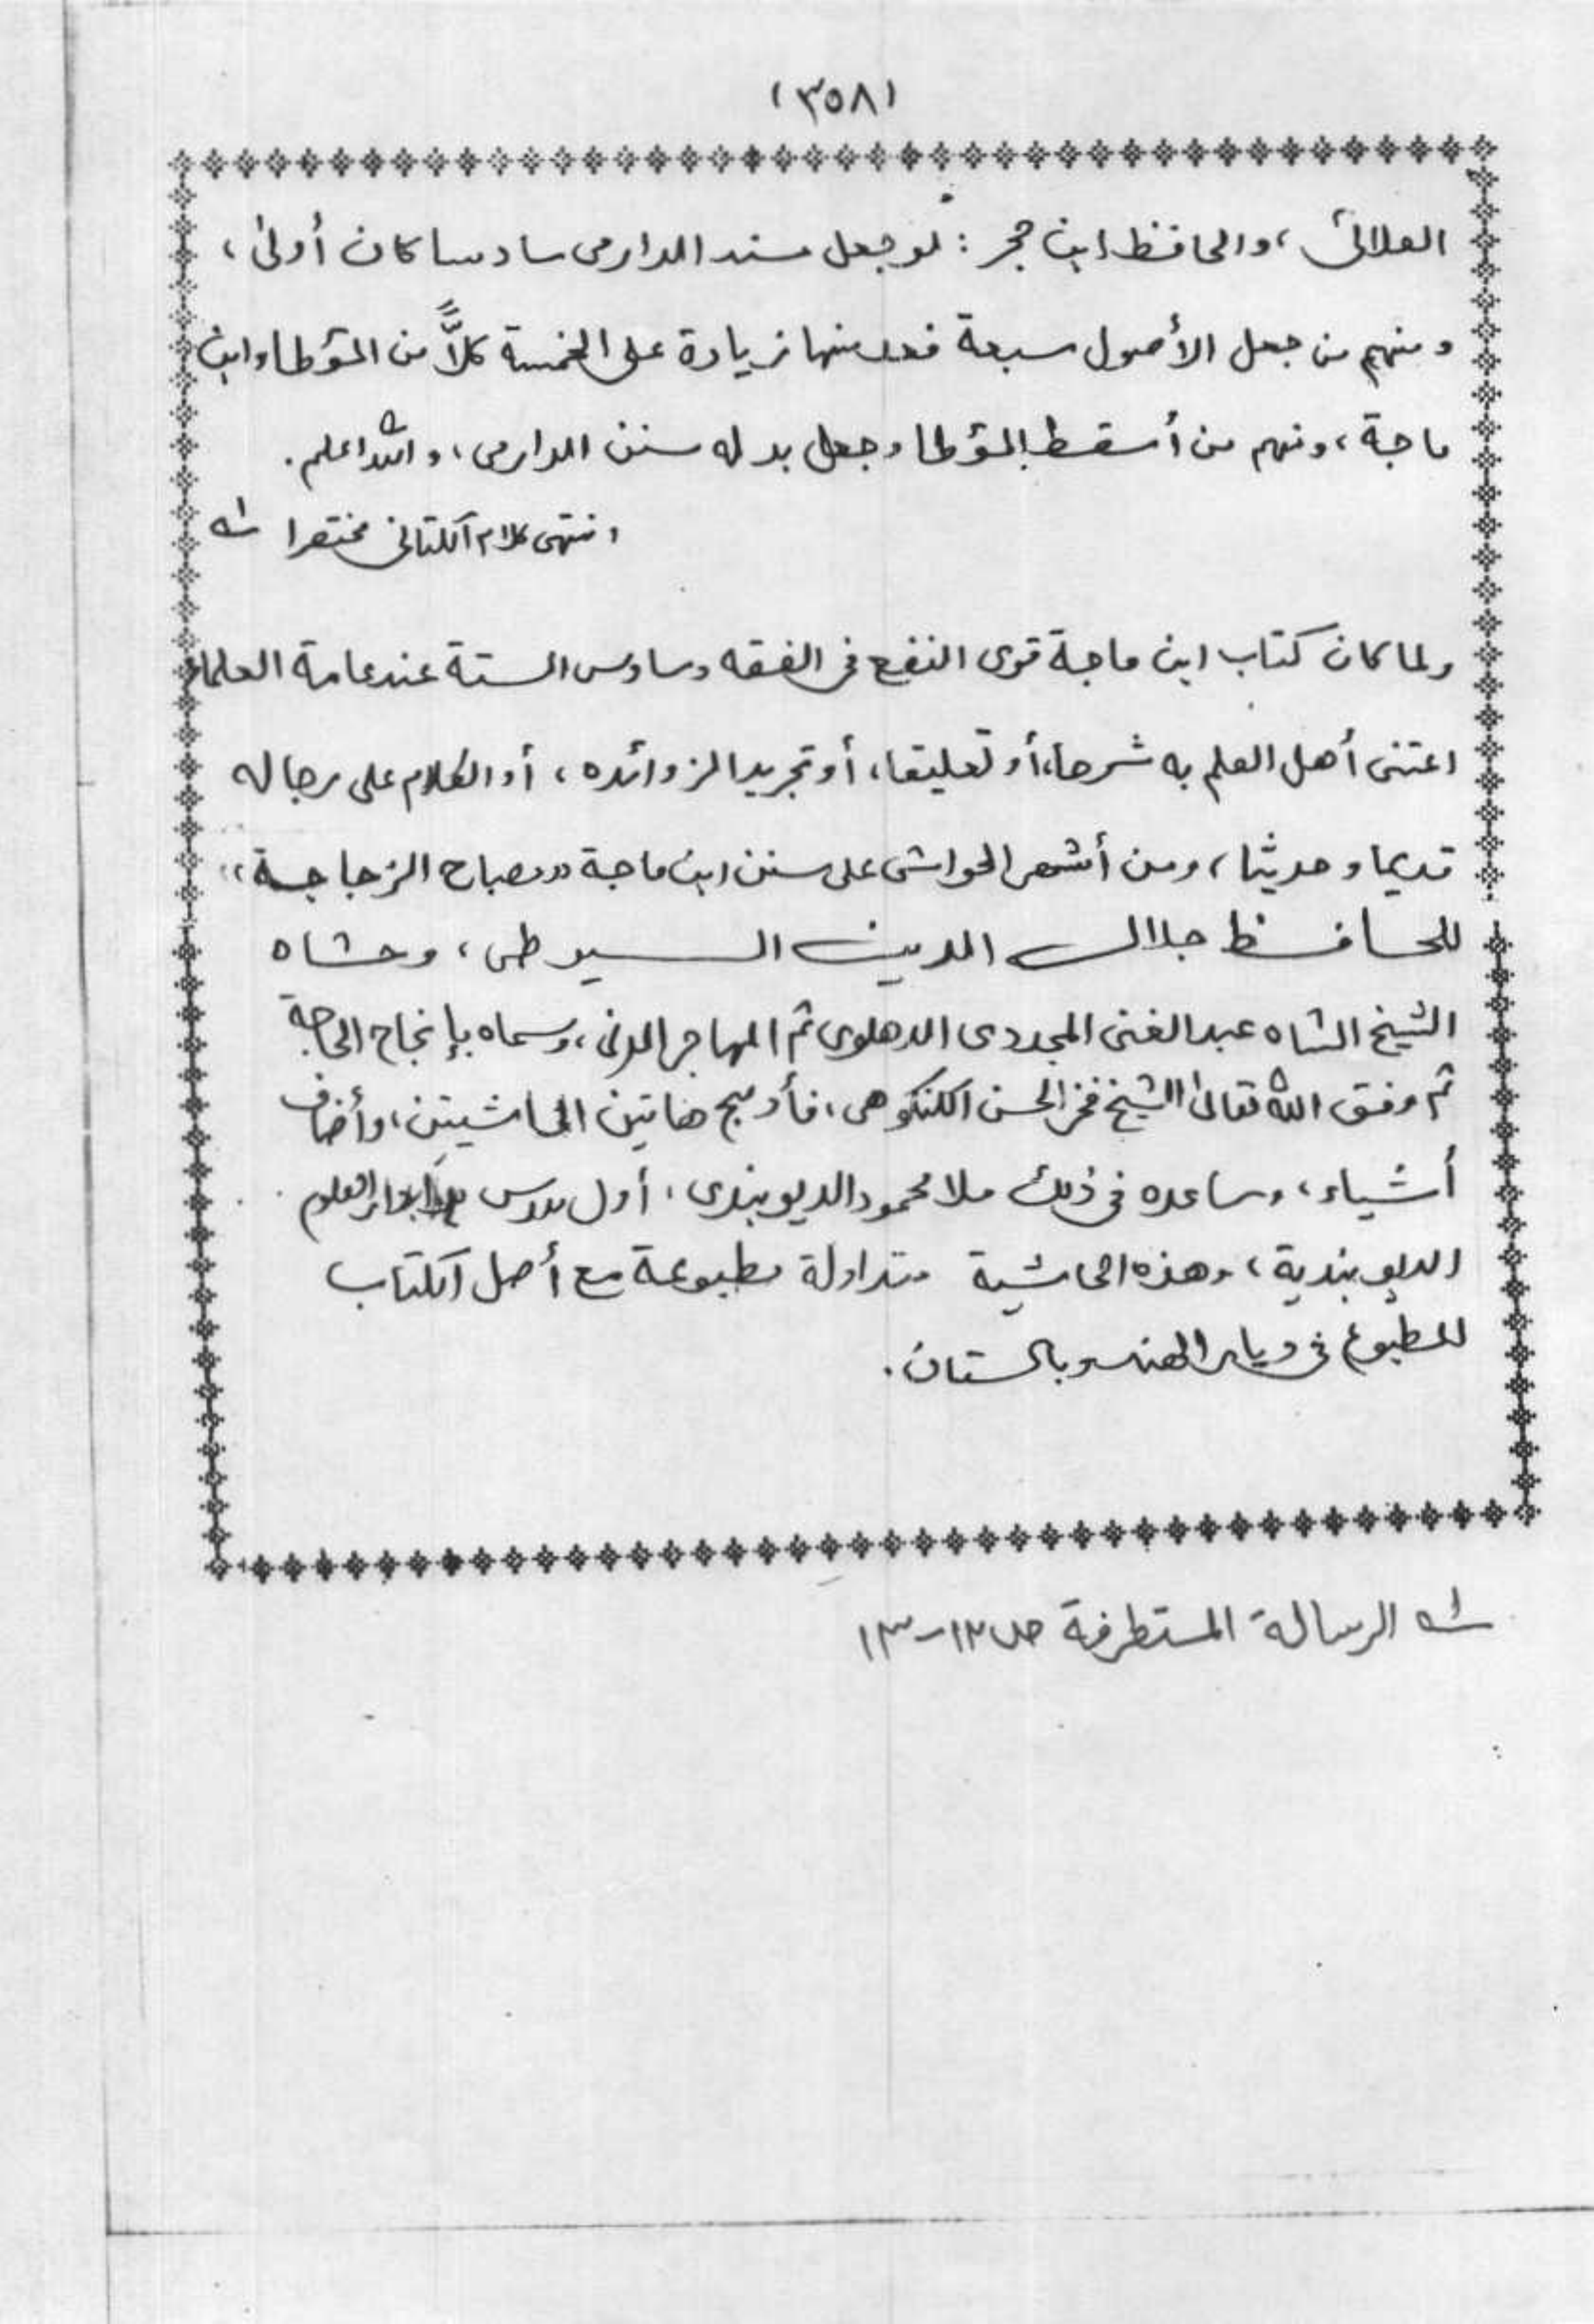 (٣٥٨)
العلائى ، والحافظ ابن حجر : لو جعل مسند الدارمى سادسا كان أولىٰ ،
ومنهم من جعل الأصول سبعة فعد منها زيادة على الخمسة كلاًّ من المؤطا وابن
ماجة ، ومنهم من أسقط المؤطا وجعل بدله سنن الدارمى ، والله اعلم .
انتهى كلام الكتانى مختصرا ١ه
ولما كان كتاب ابن ماجة قوى النفع فى الفقه وسادس الستة عند عامة العلماء
اعتنى أهل العلم به شرحا ، أو تعليقا ، أو تجريدا لزوائده ، أو الكلام على رجاله
قديما وحديثا ، ومن أشهر الحواشى على سنن ابن ماجة ،،مصباح الزجاجة،،
للحافظ جلال الدين السيوطى ، وحشاه
الشيخ الشاه عبد الغنى المجددى الدهلوى ثم المهاجر المدنى ، وسماه بإنجاح الحاجة
ثم وفق الله تعالىٰ الشيخ فخر الحسن الكنكوهى ، فأدمج هاتين الحاشيتين ، وأضاف
أشياء ، وساعده فى ذلك ملا محمود الديوبندى ، أول مدرس العلوم
الديوبندية ، وهذه الحاشية متداولة مطبوعة مع أصل الكتاب
المطبوع فى ديار الهند وباكستان .
١ه الرسالة المستطرفة ص ١٢-١٣